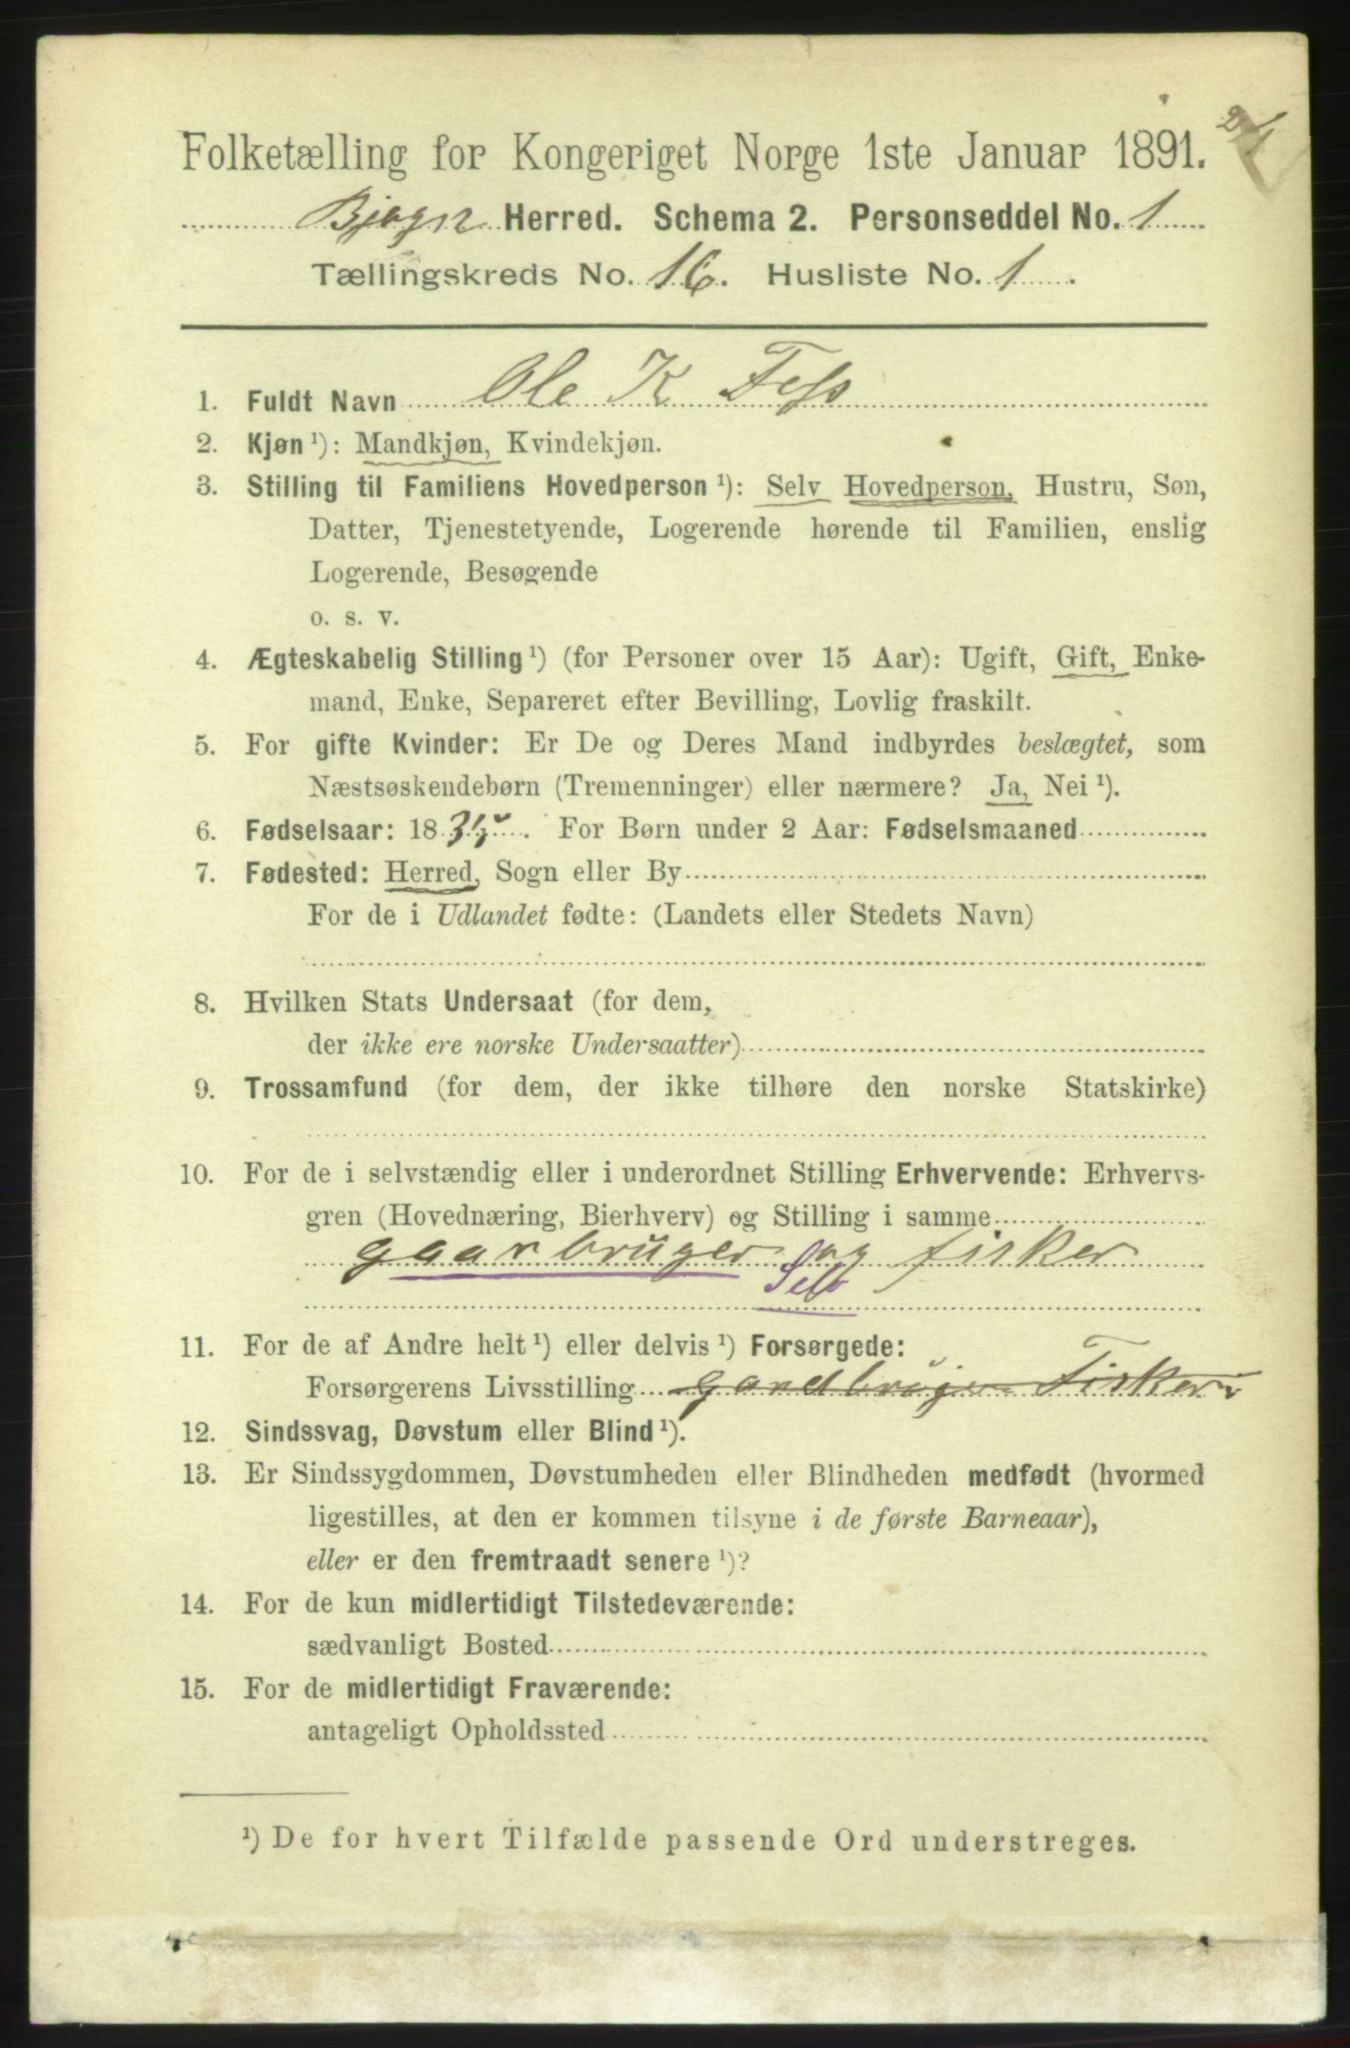 Folketælling for Kongeriget Norge 1ste Januar 1891.
Bjugn Herred. Schema 2. Personseddel No. 1
Tællingskreds No. 16. Husliste No. 1.
1. Fuldt Navn Ole K Fess
2. Kjøn ¹): Mandkjøn, Kvindekjøn.
3. Stilling til Familiens Hovedperson ¹): Selv Hovedperson, Hustru, Søn,
Datter, Tjenestetyende, Logerende hørende til Familien, enslig
Logerende, Besøgende
o. s. v.
4. Ægteskabelig Stilling ¹) (for Personer over 15 Aar): Ugift, Gift, Enke-
mand, Enke, Separeret efter Bevilling, Lovlig fraskilt.
5. For gifte Kvinder: Er De og Deres Mand indbyrdes beslægtet, som
Næstsøskendebørn (Tremenninger) eller nærmere? Ja, Nei ¹).
6. Fødselsaar: 18 . For Børn under 2 Aar: Fødselsmaaned
7. Fødested: Herred, Sogn eller By
For de i Udlandet fødte: (Landets eller Stedets Navn)
8. Hvilken Stats Undersaat (for dem,
der ikke ere norske Undersaatter)
9. Trossamfund (for dem, der ikke tilhøre den norske Statskirke)
10. For de i selvstændig eller i underordnet Stilling Erhvervende: Erhvervs-
gren (Hovednæring, Bierhverv) og Stilling i samme
gaarbruger og fisker
Selv
11. For de af Andre helt ¹) eller delvis ¹) Forsørgede:
Forsørgerens Livsstilling gaardbruger Fisker
12. Sindssvag, Døvstum eller Blind ¹).
13. Er Sindssygdommen, Døvstumheden eller Blindheden medfødt (hvormed
ligestilles, at den er kommen tilsyne i de første Barneaar),
eller er den fremtraadt senere ¹)?
14. For de kun midlertidigt Tilstedeværende:
sædvanligt Bosted
15. For de midlertidigt Fraværende:
antageligt Opholdssted
¹) De for hvert Tilfælde passende Ord understreges.